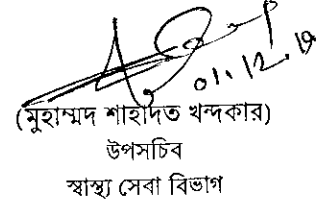 ০১.১২.১৯
(মুহাম্মদ শাহাদত খন্দকার)
উপসচিব
স্বাস্থ্য সেবা বিভাগ